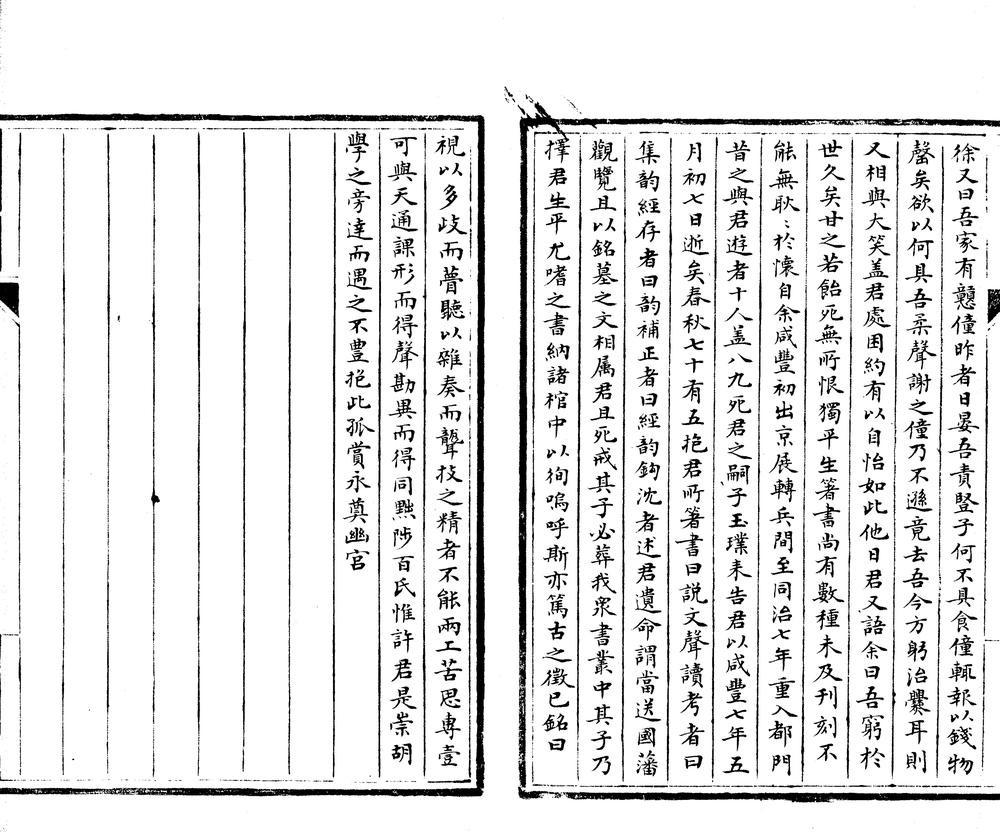 徐又曰吾家有戇僮昨者日晏吾責豎子何不具食僮輒報以錢物
罄矣欲以何具吾柔聲謝之僮乃不遜竟去吾今方躬治爨耳則
又相與大笑盖君處困約有以自怡如此他日君又語余曰吾窮於
世久矣甘之若飴死無所恨獨平生箸書尚有數種未及刊刻不
能無耿〻於懷自余咸豐初出京展轉兵間至同治七年重入都門
昔之與君遊者十人盖八九死君之嗣子玉璞來告君以咸豐七年五
月初七日逝矣春秋七十有五抱君所箸書曰説文聲讀考者曰
集韵經存者曰韵補正者曰經韵鈎沈者述君遺命謂當送國藩
觀覽且以銘墓之文相属君且死戒其子必葬我衆書叢中其子乃
擇君生平尤嗜之書納諸棺中以徇嗚呼斯亦篤古之徵已銘曰
視以多歧而瞢聽以雜奏而聾技之精者不能兩工苦思專壹
可與天通課形而得聲勘異而得同黜陟百氏惟許君是崇胡
學之旁達而遇之不豊抱此孤賞永奠幽宮